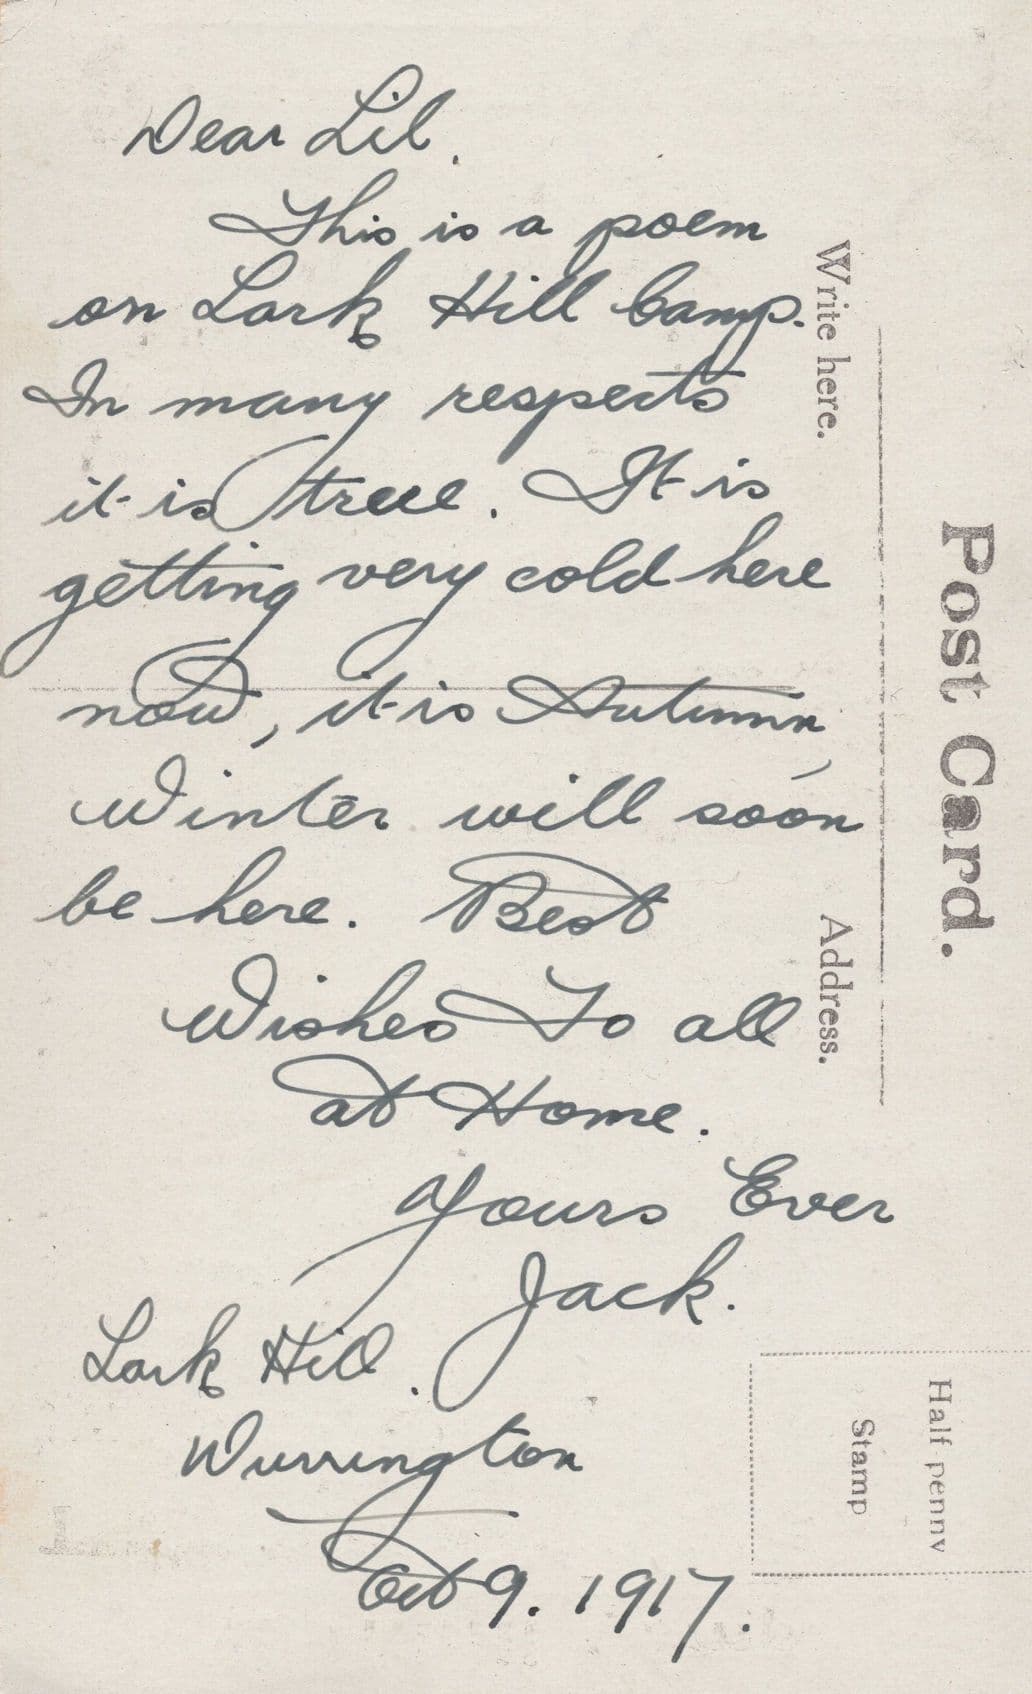 Dear Lil.
This is a poem
on Lark Hill Camp.
In many respects
it is true. It is
getting very cold here
now, it is Autumn,
Winter will soon
be here. Best
Wishes To all
at Home.
Yours Ever
Jack.
Lark Hill.
Durrington
Oct 9. 1917.
Post Card.
Write here.
Address.
Half-penny
Stamp